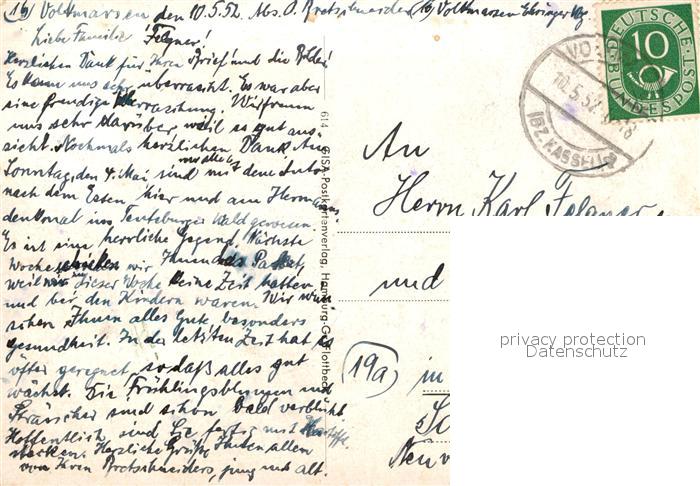 (16) Volkmarsen den 10.5.52. Abs. O. Bretschneider (16) Volkmarsen
Liebe Familie Felgner!
Herzlichen Dank für Ihren Brief und die Bilder!
Es kam uns sehr überrascht. Es war aber
eine freudige Überraschung. Wir freuen
uns sehr darüber, weil es so gut aus-
sieht. Nochmals herzlichen Dank. Am
Sonntag, den 4. Mai sind wir mit dem Auto
nach dem Essen hier und am Hermanns-
denkmal im Teutoburger Wald gewesen.
Es ist eine herrliche Gegend. Nächste
Woche schicken wir Ihnen das Paket,
weil wir in dieser Woche keine Zeit hatten
und bei den Kindern waren. Wir wün-
schen Ihnen alles Gute, besonders
Gesundheit. In der letzten Zeit hat es
öfter geregnet, sodaß alles gut
wächst. Die Frühlingsblumen und
Sträucher sind schon bald verblüht
Hoffentlich sind Sie fertig mit
stecken. Herzliche Grüße Ihnen allen
von Ihren Bretschneiders, jung und alt.
614 GISA-Postkartenverlag, Hamburg-Gr. Flottbek
DEUTSCHE BUNDESPOST
10
10.5.52
(BZ. KASSEL)
An
Herrn Karl Felgner
und
(19a) in
Neu
privacy protection
Datenschutz